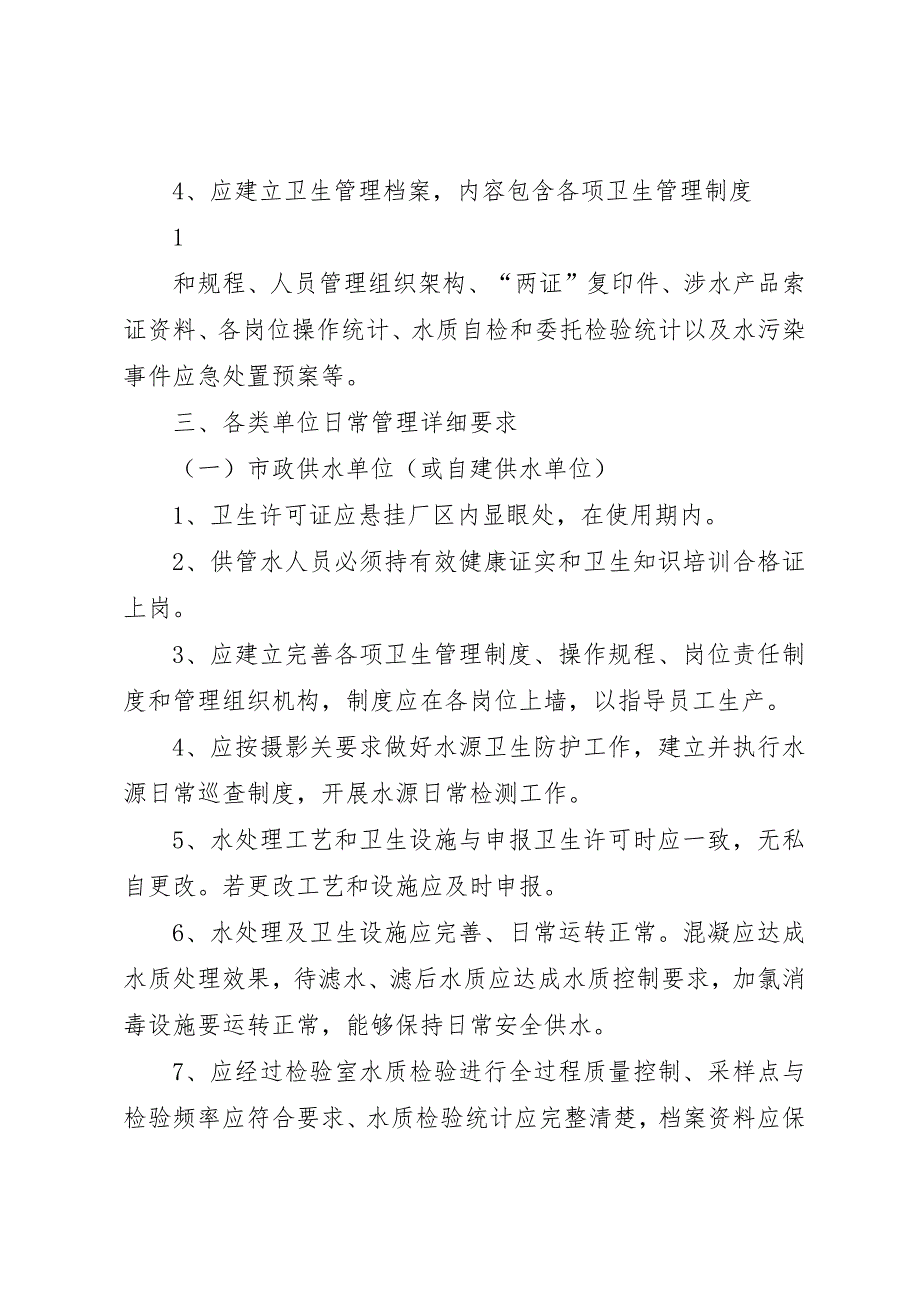 4、应建立卫生管理档案，内容包含各项卫生管理制度
1
和规程、人员管理组织架构、“两证”复印件、涉水产品索
证资料、各岗位操作统计、水质自检和委托检验统计以及水污染
事件应急处置预案等。
三、各类单位日常管理详细要求
（一）市政供水单位（或自建供水单位）
1、卫生许可证应悬挂厂区内显眼处，在使用期内。
2、供管水人员必须持有效健康证实和卫生知识培训合格证
上岗。
3、应建立完善各项卫生管理制度、操作规程、岗位责任制
度和管理组织机构，制度应在各岗位上墙，以指导员工生产。
4、应按摄影关要求做好水源卫生防护工作，建立并执行水
源日常巡查制度，开展水源日常检测工作。
5、水处理工艺和卫生设施与申报卫生许可时应一致，无私
自更改。若更改工艺和设施应及时申报。
6、水处理及卫生设施应完善、日常运转正常。混凝应达成
水质处理效果，待滤水、滤后水质应达成水质控制要求，加氯消
毒设施要运转正常，能够保持日常安全供水。
7、应经过检验室水质检验进行全过程质量控制、采样点与
检验频率应符合要求、水质检验统计应完整清楚，档案资料应保